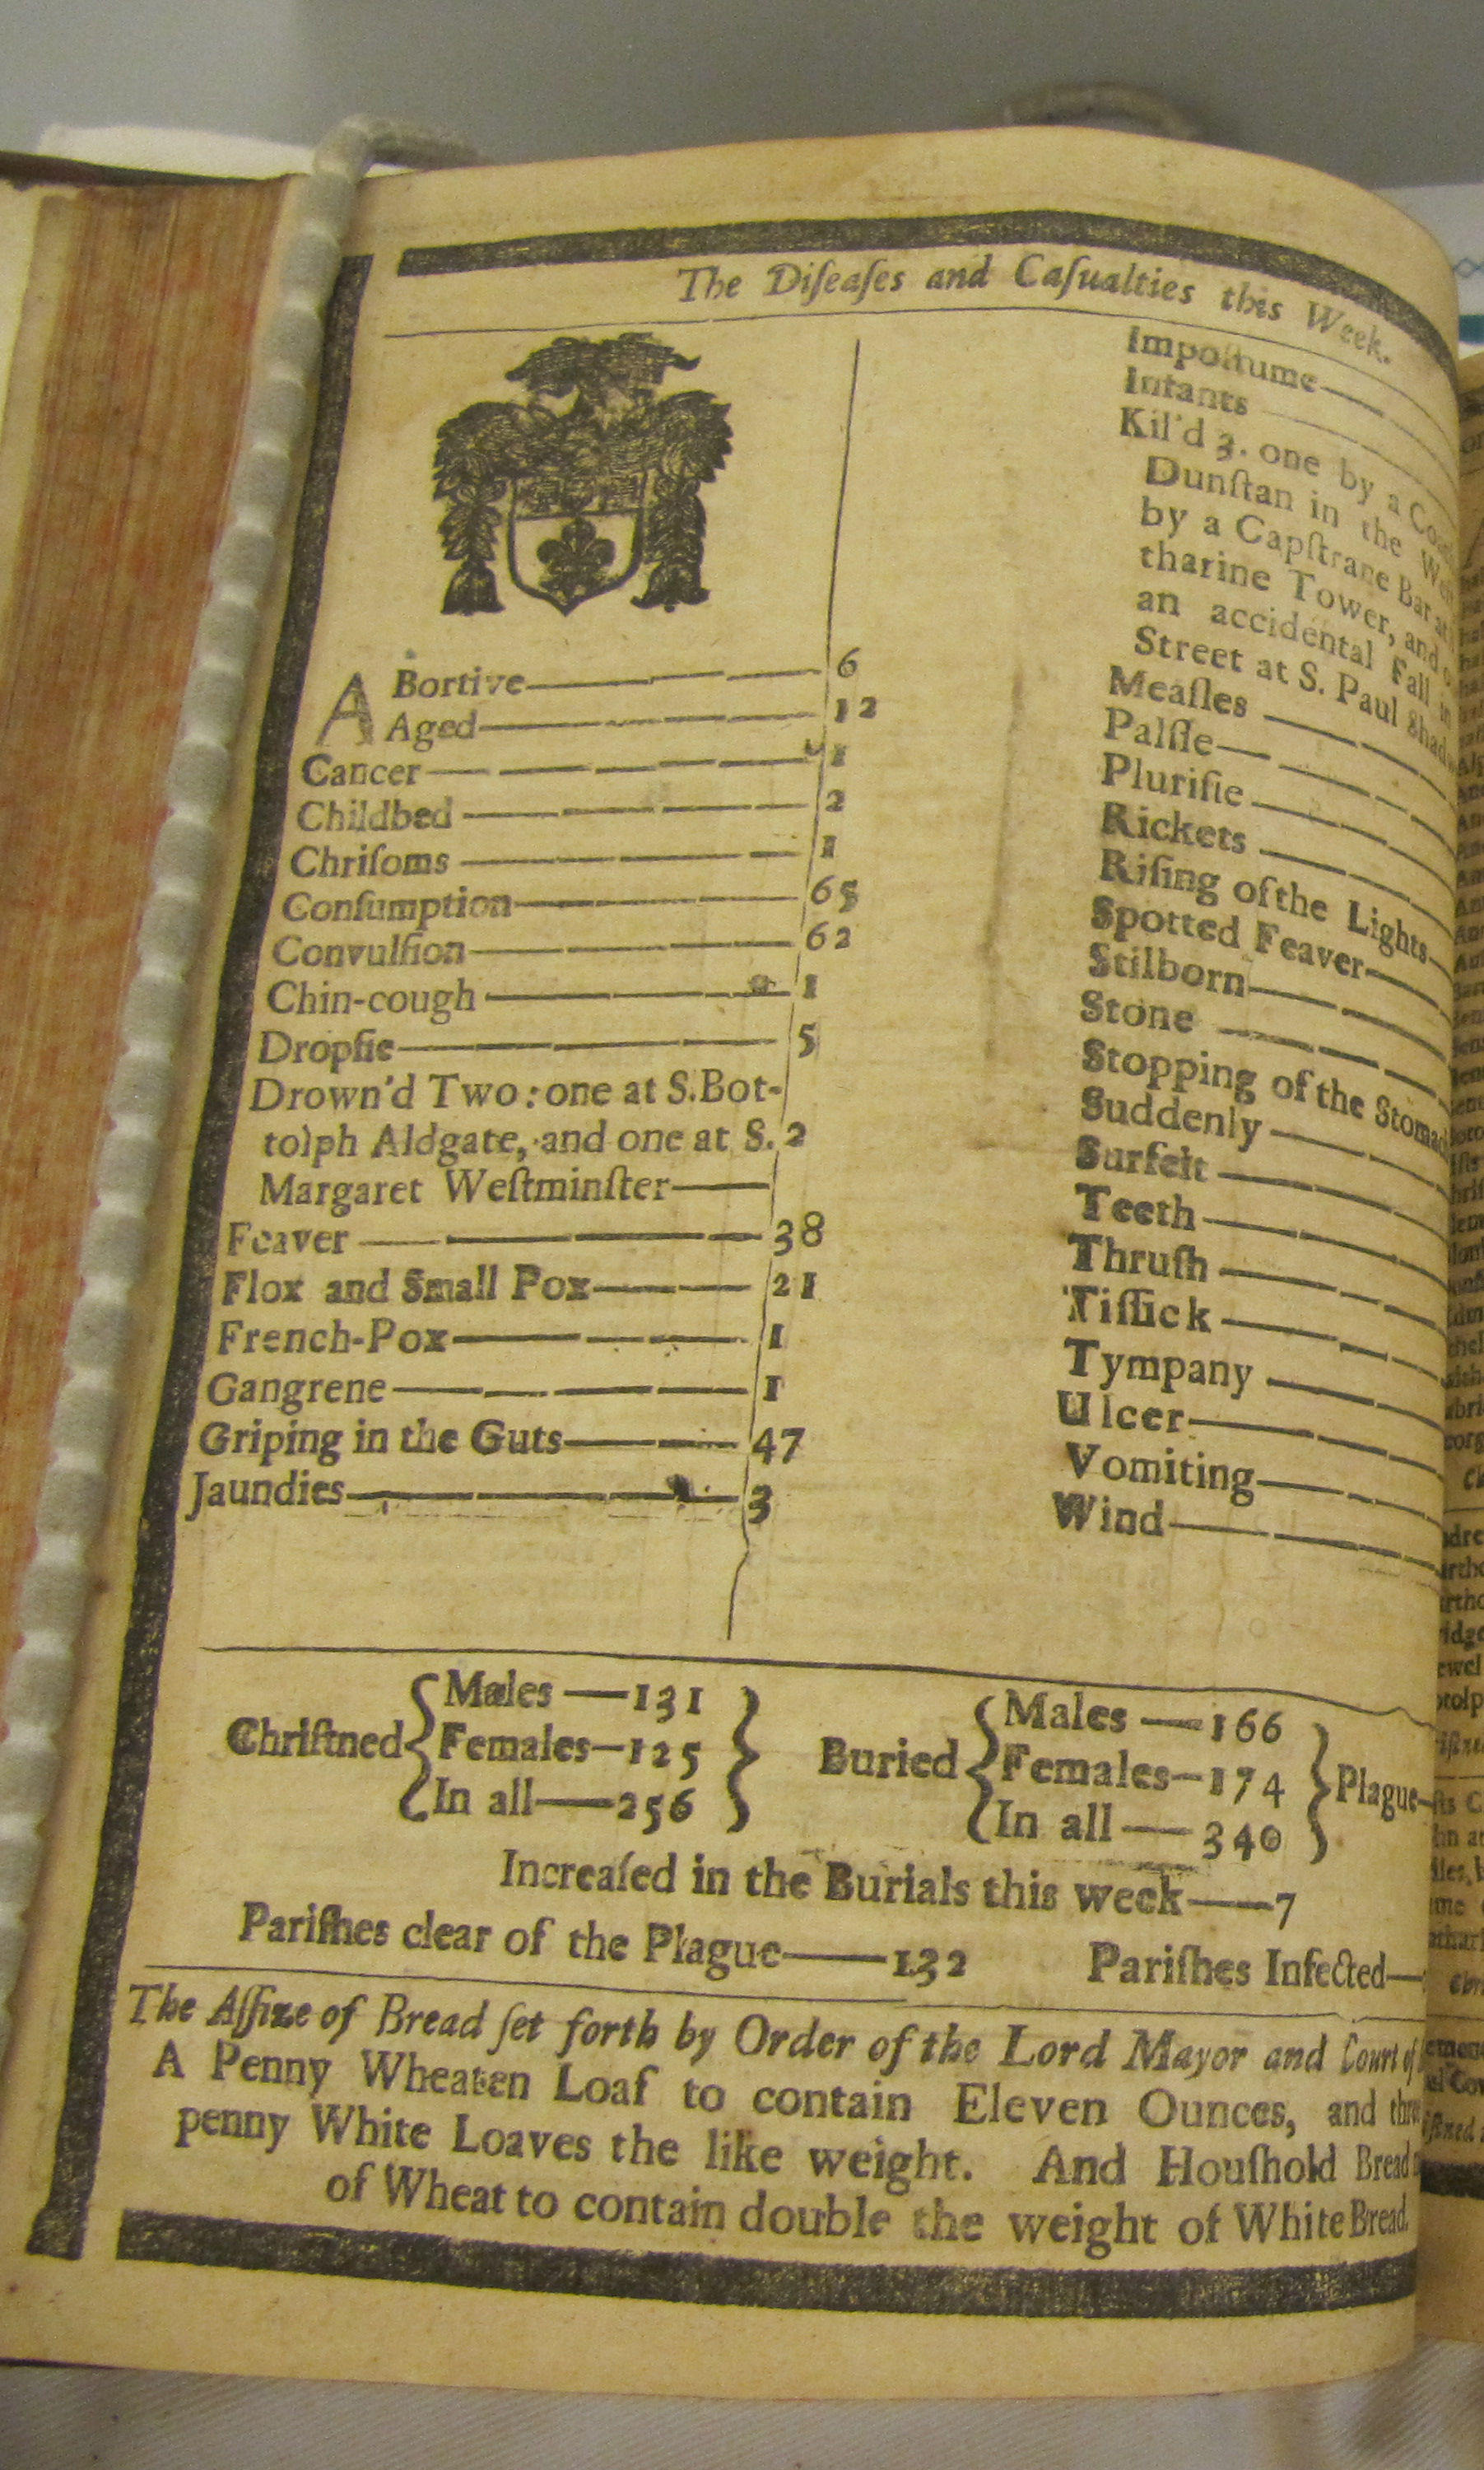 The Diſeaſes and Caſualties this Week.
ABortive 6
Aged 12
Cancer 1
Childbed 2
Chriſoms 1
Conſumption 65
Convulſion 62
Chin-cough 1
Dropſie 5
Drown'd Two: one at S. Bot-
tolph Aldgate, and one at S. 2
Margaret Weſtminſter
Feaver 38
Flox and Small Pox 21
French-Pox 1
Gangrene 1
Griping in the Guts 47
Jaundies 3
Impoſtume
Infants
Kil'd 3. one by a
Dunſtan in the
by a Capſtrane Bar at
tharine Tower, and
an accidental Fall in
Street at S. Paul
Meaſles
Palſie
Pluriſie
Rickets
Riſing of the Lights
Spotted Feaver
Stilborn
Stone
Stopping of the
Suddenly
Surfeit
Teeth
Thruſh
Tiſſick
Tympany
Ulcer
Vomiting
Wind
Chriſtned { Males—131
Females—125
In all—256 }
Buried { Males—166
Females—174
In all—340 } Plague—
Increaſed in the Burials this week—7
Pariſhes clear of the Plague—132 Pariſhes Infected—
The Aſſize of Bread ſet forth by Order of the Lord Mayor and Court of
A Penny Wheaten Loaf to contain Eleven Ounces, and
penny White Loaves the like weight. And Houſhold Bread
of Wheat to contain double the weight of White Bread.